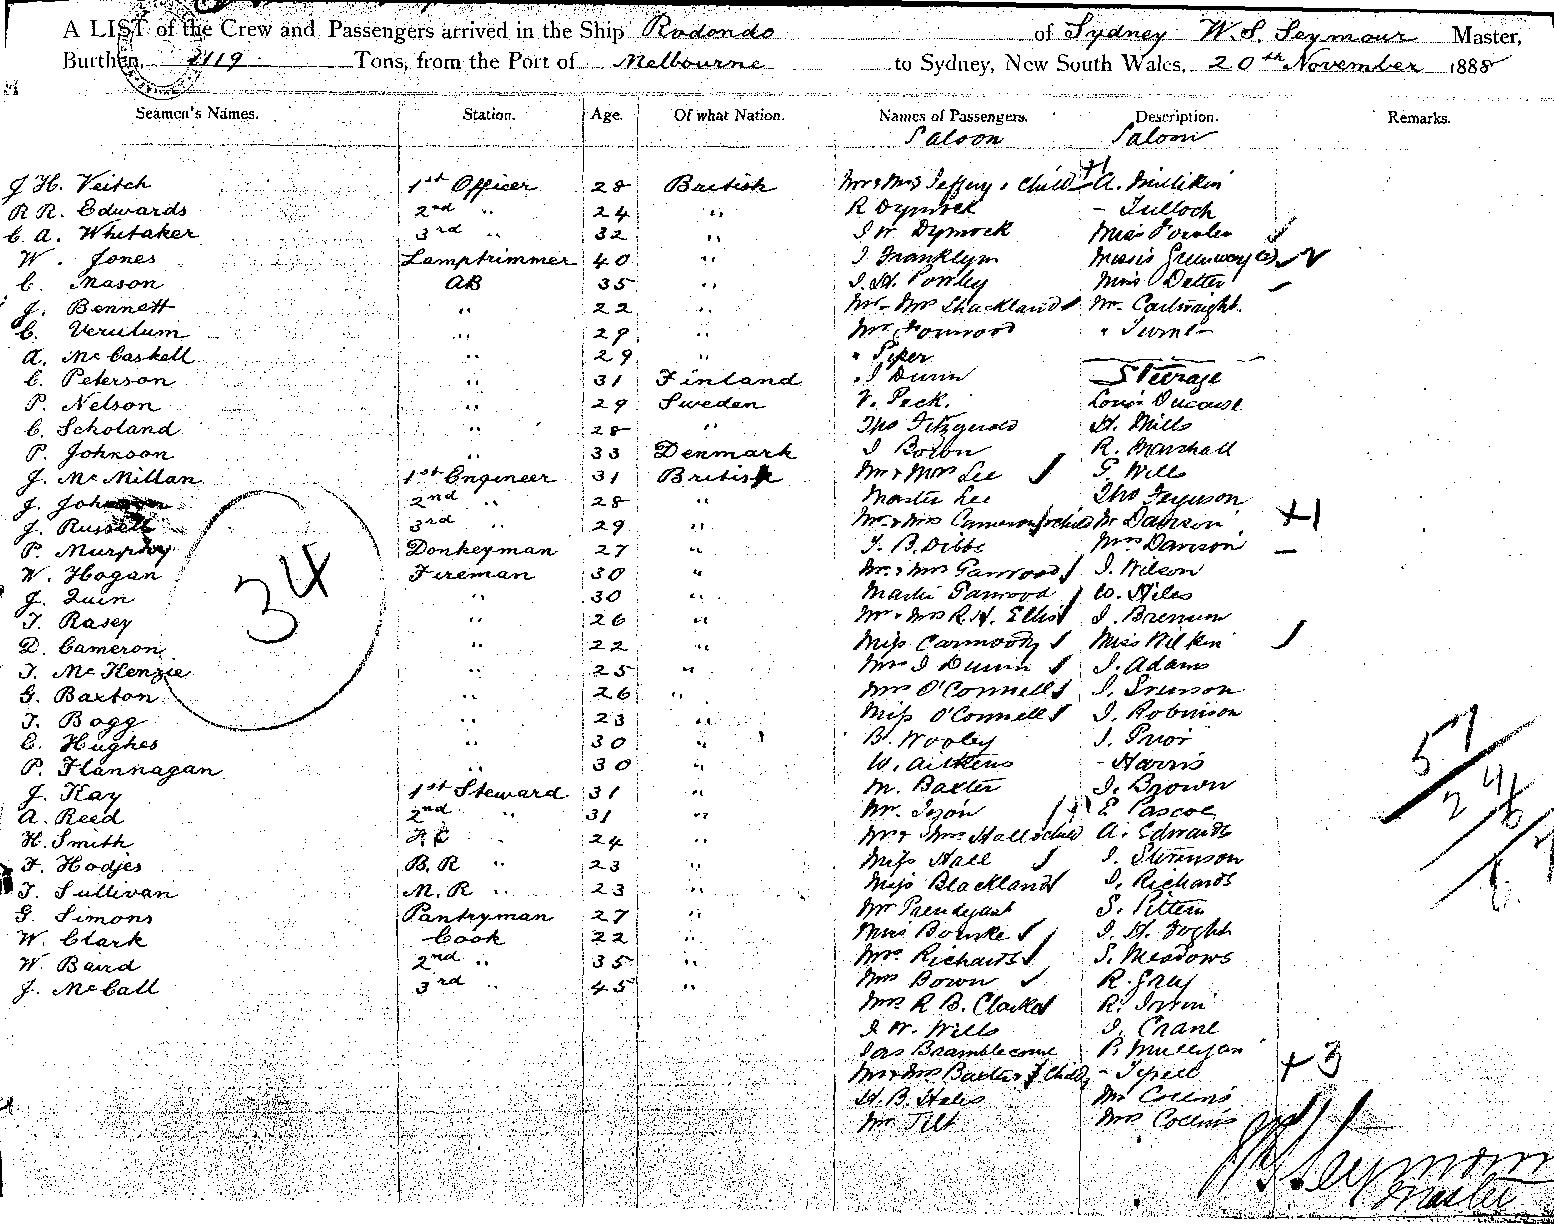 A LIST of the Crew and Passengers arrived in the Ship Rodondo of Sydney W. S. Seymour Master,
Burthen, 1119 Tons, from the Port of Melbourne to Sydney, New South Wales, 20th November 1888
Seamen's Names. Station. Age. Of what Nation. Names of Passengers. Description. Remarks.
Saloon Saloon
J H. Veitch 1st Officer 28 British Mr & Mrs Jeffery & Child +1 A. Millikin
R R. Edwards 2nd " 24 " R Dymock - Tulloch
C. A. Whitaker 3rd " 32 " J W Dymock Miss Fowler
W. Jones Lamptrimmer 40 " J Franklyn Misses Greenway (2)
C. Mason AB 35 " J. H. Powley Miss Detter
J. Bennett " 22 " Mr & Mrs Shackland Mr Cartwright
C. Verulum " 29 " Mr "
A. McCaskell " 29 " " Piper
C. Peterson " 31 Finland " J Dunn Steerage
P. Nelson " 29 Sweden V. Peck. Louis Ducasse
C. Scholand " 28 " Thos Fitzgerald H. Mills
P. Johnson " 33 Denmark J Bown R. Marshall
J. McMillan 1st Engineer 31 British Mr & Mrs Lee G. Wills
J. Johnson 2nd " 28 " Master Lee Thos Ferguson
J. Russell 3rd " 29 " Mr & Mrs Cameron & child Mr Davison +1
P. Murphy Donkeyman 27 " T. B. Dibbs Mrs Davison -
W. Hogan Fireman 30 " Mr & Mrs Garwood J. Wilson
J. Quin " 30 " Master Garwood W. Hiles
T. Rasey " 26 " Mr & Mrs R. H. Ellis J. Brennan
D. Cameron " 22 " Miss Carmoody Miss Wilkin
T. McKenzie " 25 " Mrs J Dunn J. Adams
G. Baxton " 26 " Mrs O'Connell J.
T. Bogg " 23 " Miss O'Connell J. Robinson
C. Hughes " 30 " B. Wooley J. Prior
P. Flannagan " 30 " W. Aitkens - Harris
J. Kay 1st Steward 31 " M. Baxter J. Brown
A. Reed 2nd " 31 " Mr. Tyson E Pascoe
H. Smith F.C " 24 " Mr & Mrs Hall & child A. Edwards
F. Hodjes B. R " 23 " Miss Hall J. Stevenson
T. Sullivan M. R " 23 " Miss Blackland J. Richards
G. Simons Pantryman 27 " Mr Prendergast S. Pittem
W. Clark Cook 22 " Miss Bourke J. H.
W. Baird 2nd " 35 " Mrs Richards S. Meadows
J. McCall 3rd " 45 " Mrs Bown R. Gray
Mrs R B. Clarke R. Irwin
J. W. Wills J. Crane
Jas Bramblecome P. Mulligan
Mr & Mrs Baxter & 3 Child - Tyrell +3
H. B. Hales Mr Collins
Mr Tilt Mrs Collins
34
57
246
67
W S Seymour
Master